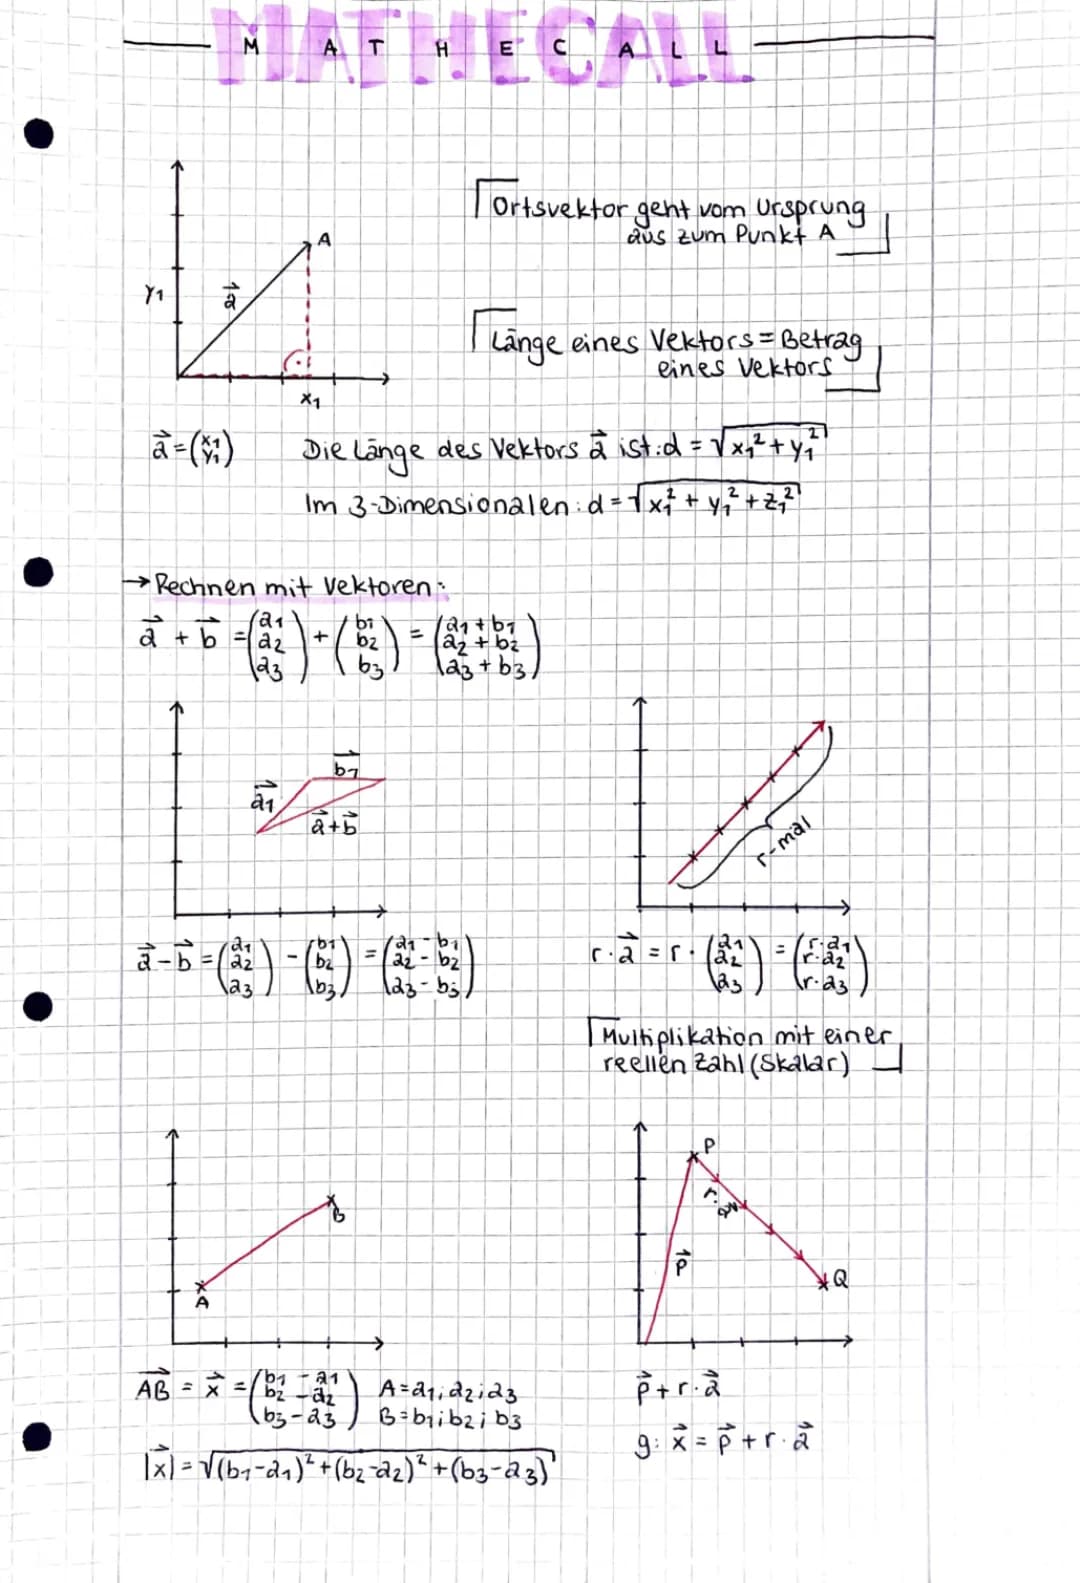 MATHECALL
A
Ortsvektor geht vom Ursprung
aus zum Punkt A
y₁
a⃗
Länge eines Vektors = Betrag
eines Vektors
x₁
a⃗ = (x₁ y₁) Die Länge des Vektors a⃗ ist: d = √x₁² + y₁²
Im 3-Dimensionalen: d = √x₁² + y₁² + z₁²
→ Rechnen mit Vektoren:
a⃗ + b⃗ = (a₁ a₂ a₃) + (b₁ b₂ b₃) = (a₁ + b₁ a₂ + b₂ a₃ + b₃)
b⃗₁
a⃗₁
a⃗ + b⃗
r-mal
a⃗ - b⃗ = (a₁ a₂ a₃) - (b₁ b₂ b₃) = (a₁ - b₁ a₂ - b₂ a₃ - b₃)
r · a⃗ = r · (a₁ a₂ a₃) = (r·a₁ r·a₂ r·a₃)
Multiplikation mit einer
reellen Zahl (Skalar)
B
A
P
r · a⃗
p⃗
Q
AB⃗ = x⃗ = (b₁ - a₁ b₂ - a₂ b₃ - a₃) A = a₁; a₂; a₃
B = b₁; b₂; b₃
|x⃗| = √(b₁ - a₁)² + (b₂ - a₂)² + (b₃ - a₃)
p⃗ + r · a⃗
g: x⃗ = p⃗ + r · a⃗